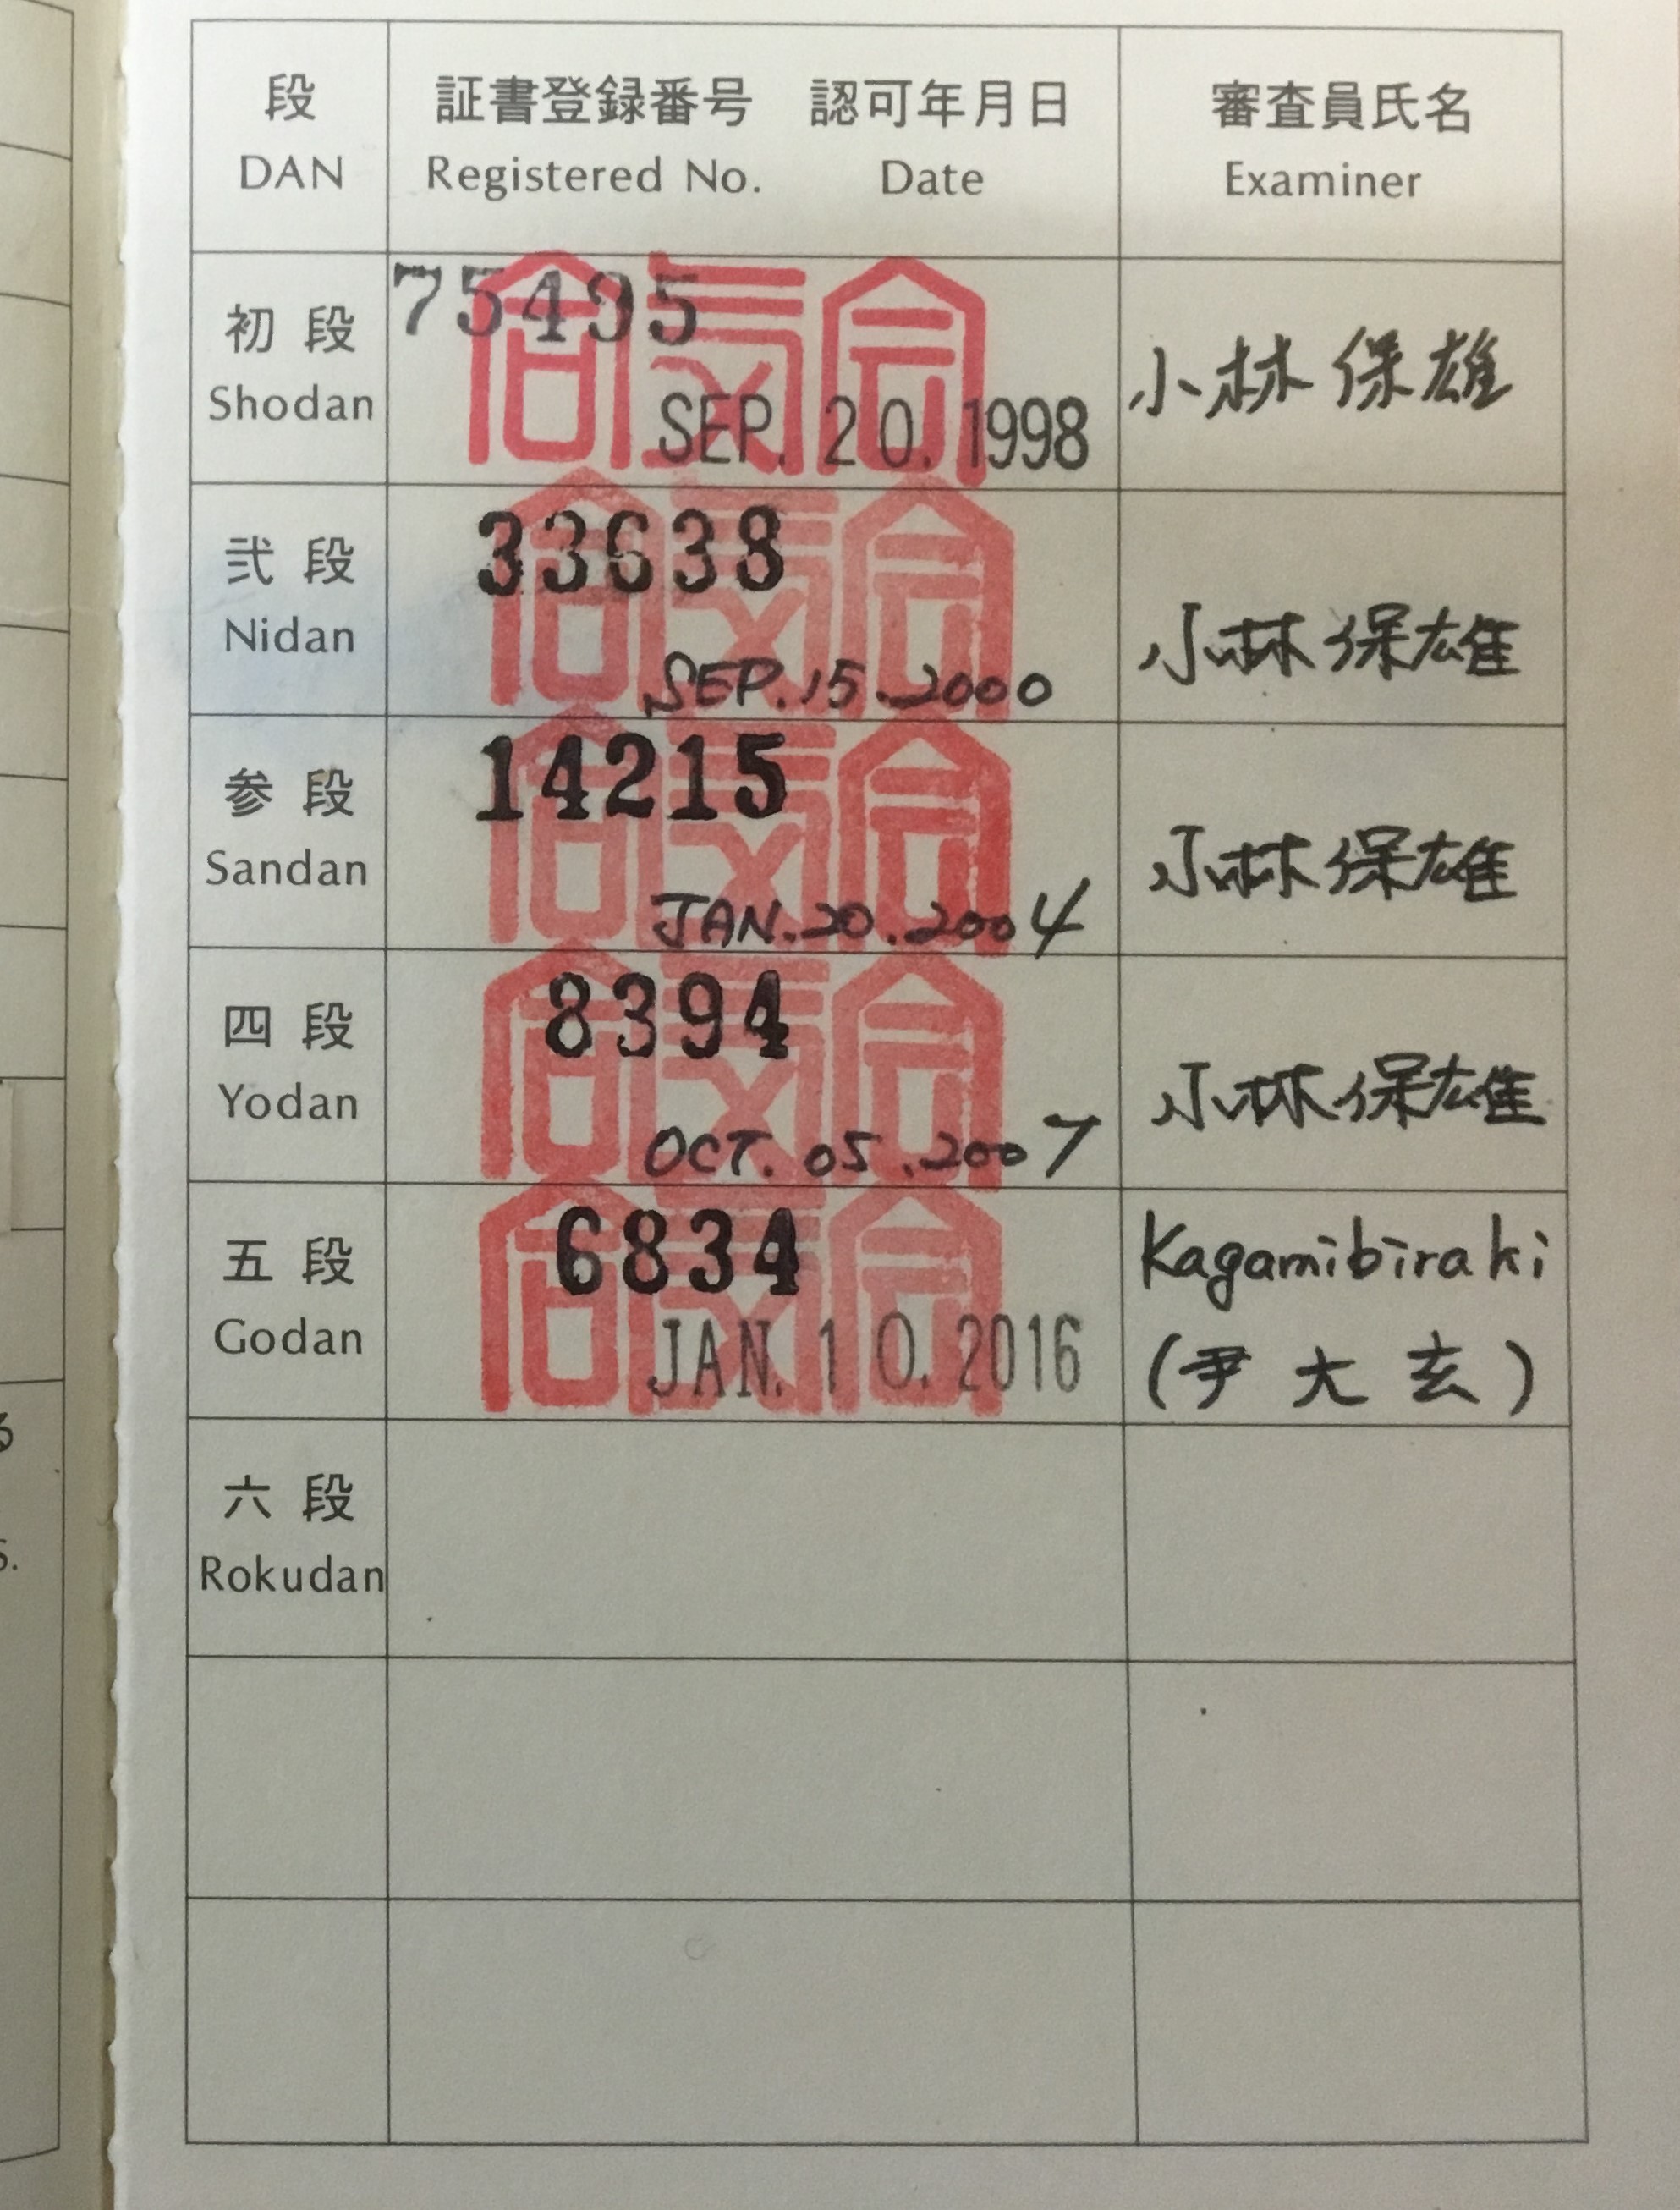 段 証書登録番号 認可年月日 審査員氏名
DAN Registered No. Date Examiner
75495
初段
Shodan
SEP. 20. 1998
小林保雄
33638
弐段
Nidan
SEP. 15. 2000
小林保雄
14215
参段
Sandan
JAN. 20. 2004
小林保雄
8394
四段
Yodan
OCT. 05. 2007
小林保雄
6834
五段
Godan
JAN. 10. 2016
Kagamibiraki
(尹大玄)
六段
Rokudan